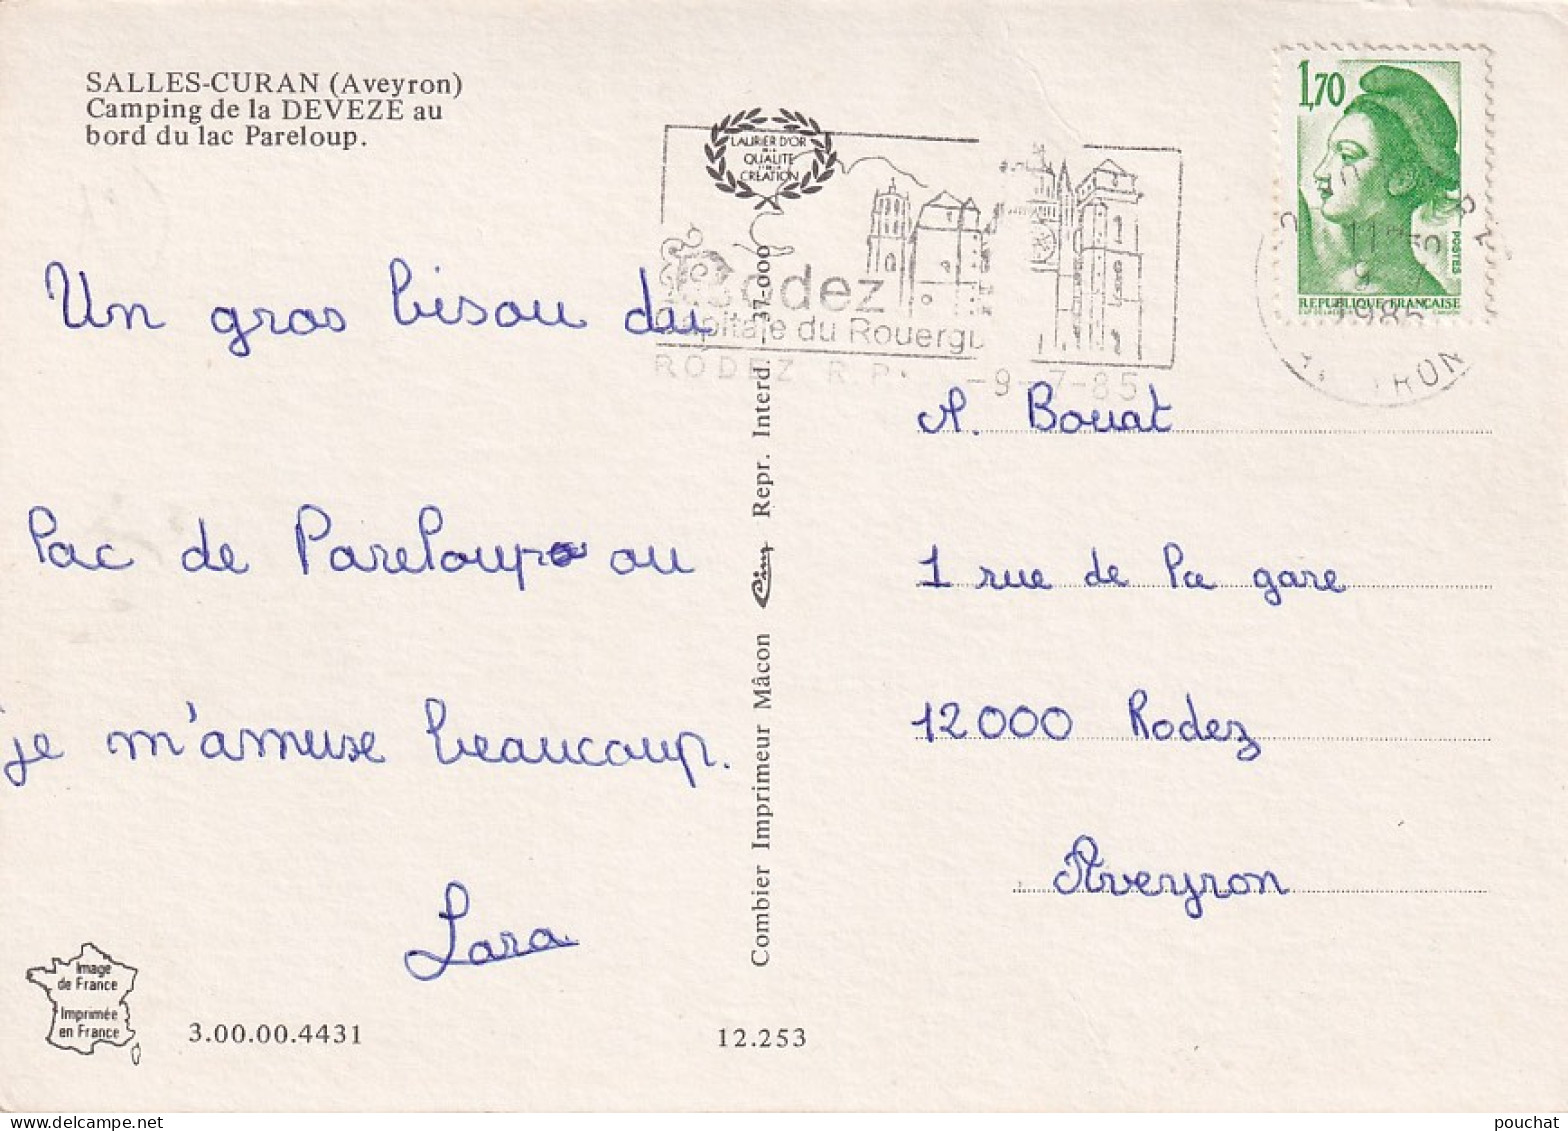 SALLES-CURAN (Aveyron)
Camping de la DEVEZE au
bord du lac Pareloup.
LAURIER D'OR
DE LA
QUALITE
CREATION
Rodez
Capitale du Rouergue
RODEZ R.P. -9-7-85
1,70
POSTES
REPUBLIQUE FRANCAISE
1985
AVEYRON
Un gros bisou du
lac de Pareloup ou
je m'amuse beaucoup.
Lara
Combier Imprimeur Mâcon Cim Repr. Interd. 37-000
A. Bouat
1 rue de la gare
12000 Rodez
Aveyron
Image
de France
Imprimée
en France
3.00.00.4431
12.253
pouchat